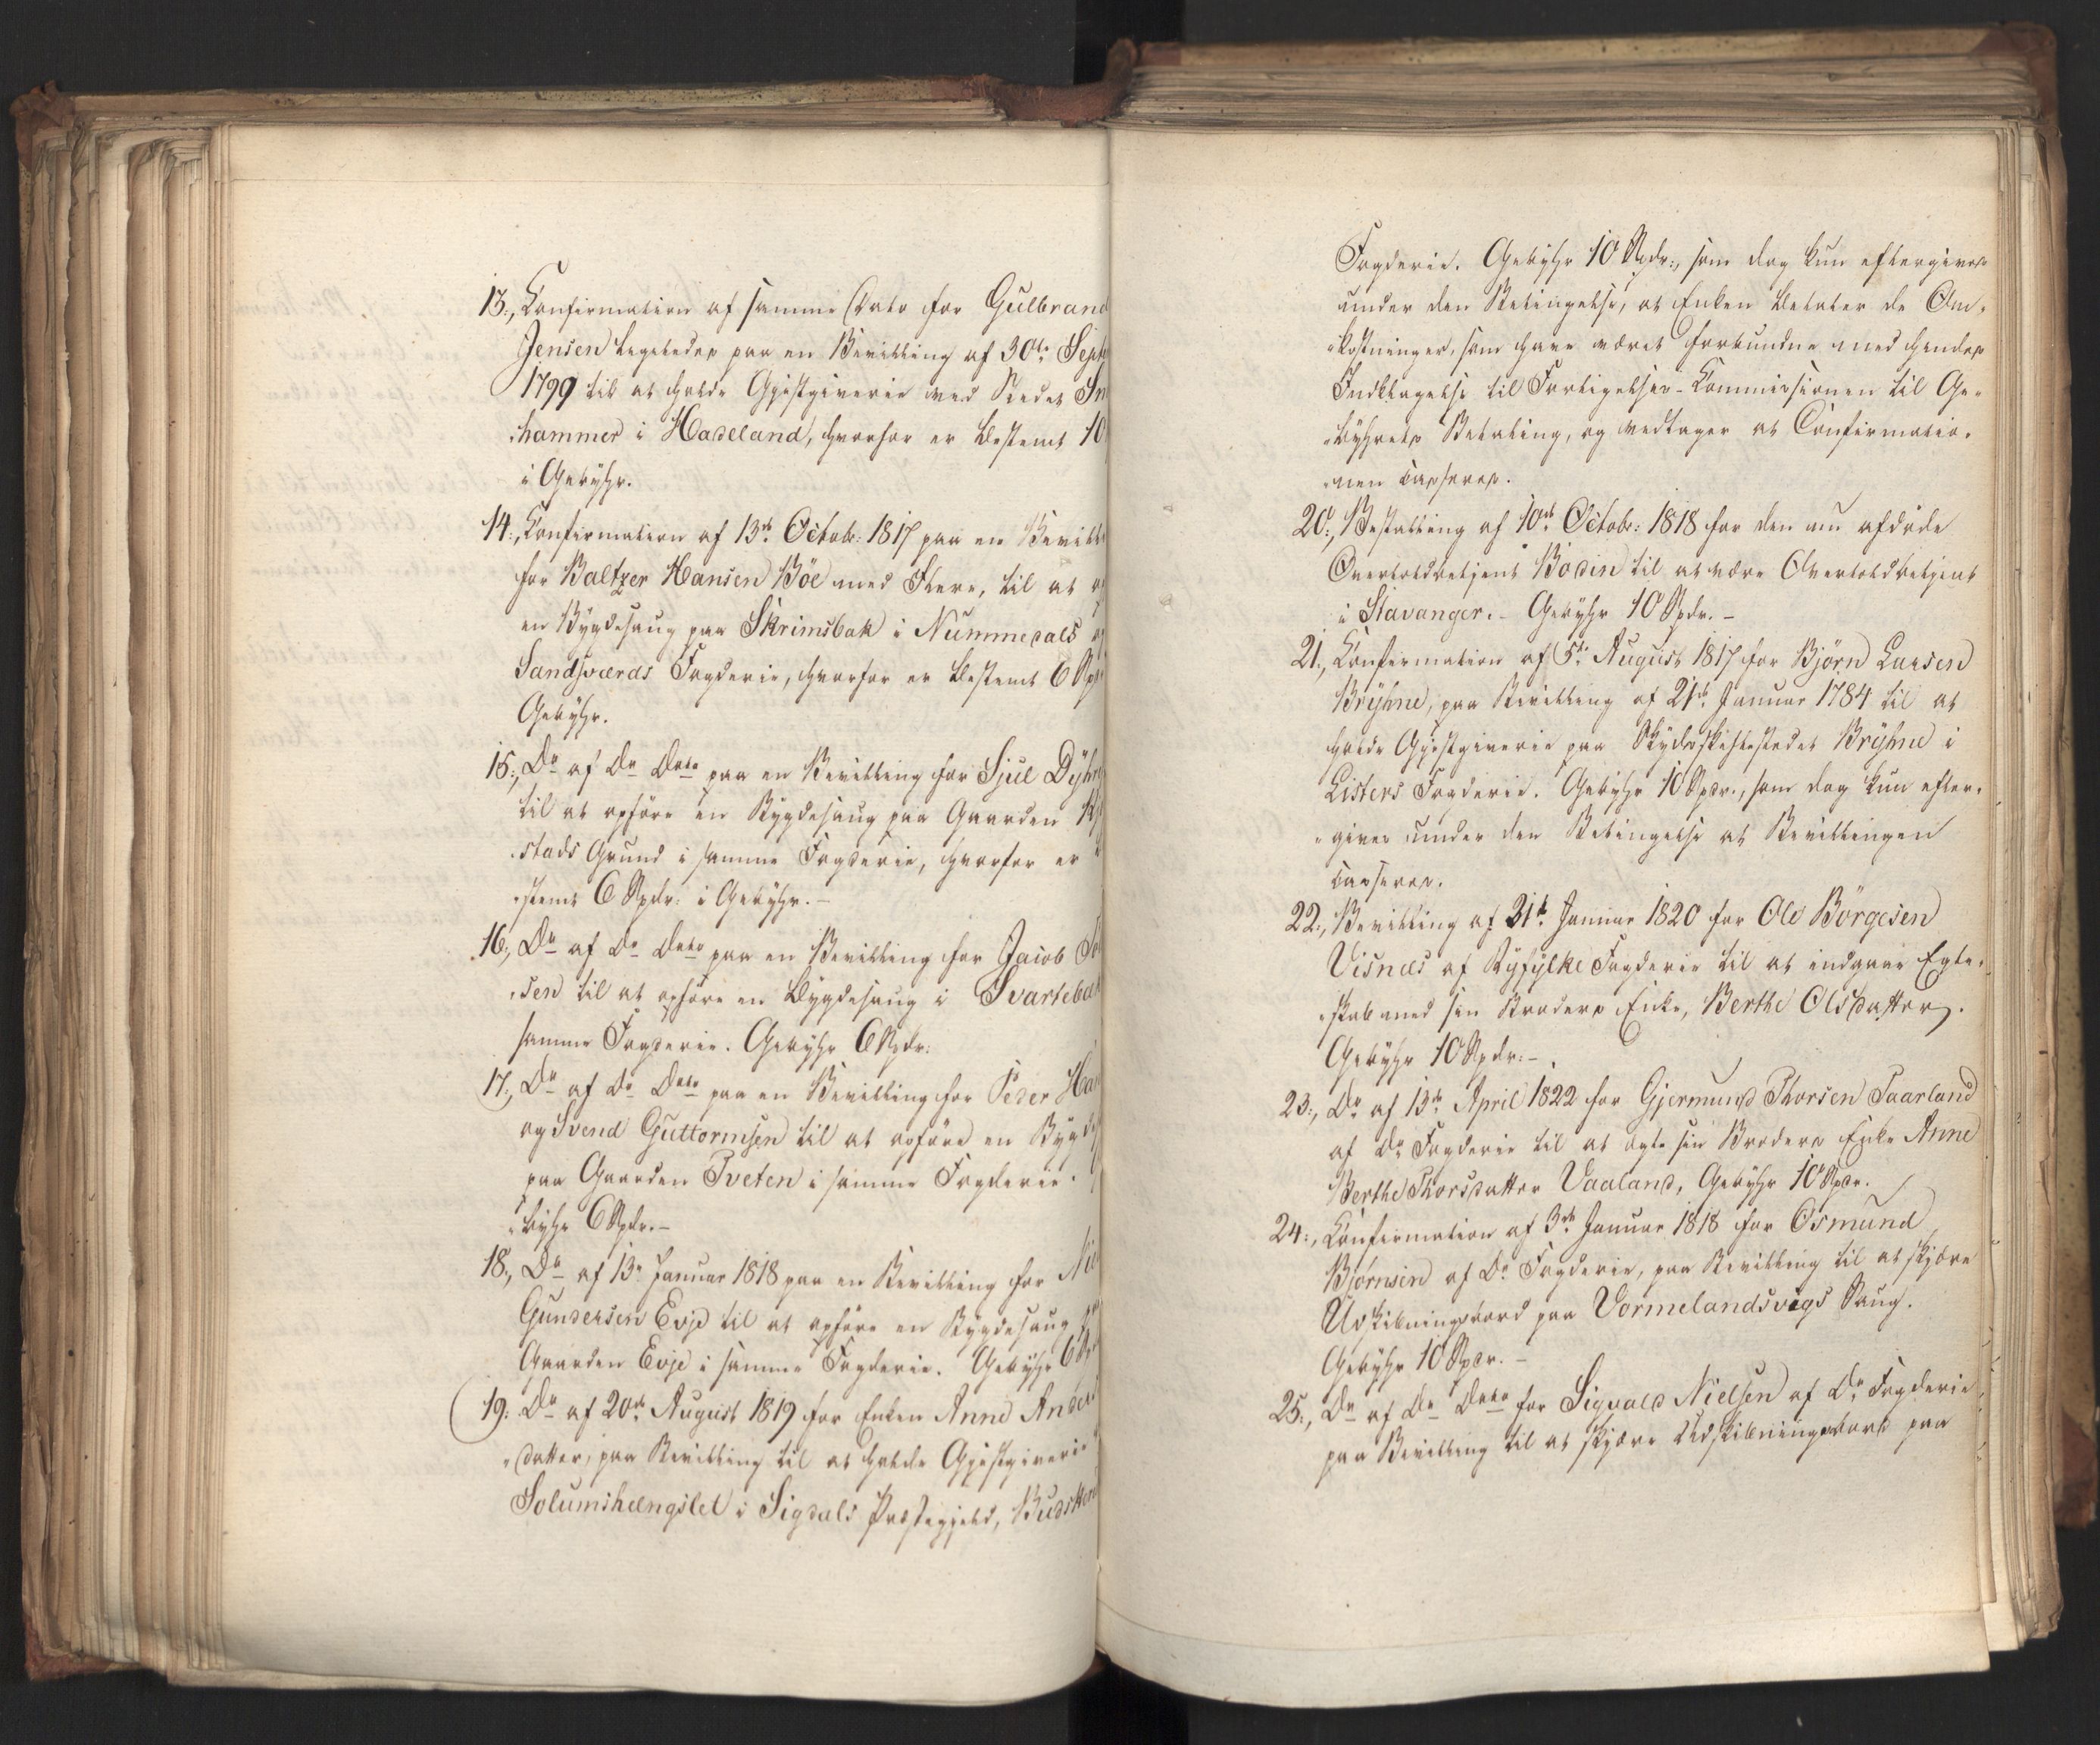 13., Confirmation af samme Dato for Gulbrand
Jensen ligeledes paa en Bevilling af 30te Sept
1799 til at holde Gjæstgiverie ved Stedet
hammer i Hadeland, hvorfor er bestemt 10
i Gebyhr.
14., Confirmation af 13de Octob: 1817 paa en Bevill
for Baltzer Hansen Böe med Flere, til at
en Bygdesaug paa Skrimsbak i Nummedals og
Sandsværds Fogderie, hvorfor er bestemt 6 Spd
Gebyhr.
15., Do af Do Dato paa en Bevilling for Sjul Dyhr
til at opføre en Bygdesaug paa Gaarden
stads Grund i samme Fogderie, hvorfor er
stemt 6 Spdr: i Gebyhr. –
16., Do af Do Dato paa en Bevilling for Jacob
sen til at opføre en Bygdesaug i Svartebak
samme Fogderie. Gebyhr 6 Spdr:
17., Do af Do Dato paa en Bevilling for Peder Han
og Svend Guttormsen til at opføre en Bygdes
paa Gaarden Tveten i samme Fogderie.
byhr 6 Spdr. –
18., Do af 13de Januar 1818 paa en Bevilling for
Gundersen Evje til at opføre en Bygdesaug
Gaarden Evje i samme Fogderie. Gebyhr 6 Spd
19: Do af 20de August 1819 for Enken Anne Anders
datter, paa Bevilling til at holde Gjæstgiverie
Solumshængslet i Sigdals Præstegjeld, Budsker
Fogderie. Gebyhr 10 Spdr:, som dog kun eftergives
under den Betingelse, at Enken betaler de Om-
kostninger, som have været forbundne med hendes
Indklagelse til Forligelses-Commissionen til Ge-
byhrets Betaling, og vedtager at Confirmatio-
nen casseres.
20., Bestalling af 10de Octob: 1818 for den nu afdøde
Overtoldbetjent Bodin til at være Overtoldbetjent
i Stavanger. – Gebyhr 10 Spdr. –
21., Confirmation af 5te August 1817 for Björn Larsen
Bryhne, paa Bevilling af 21de Januar 1784 til at
holde Gjæstgiverie paa Skydsskiftestedet Bryhne i
Listers Fogderie. Gebyhr 10 Spdr., som dog kun efter-
gives under den Betingelse at Bevillingen
casseres.
22., Bevilling af 31te Januar 1820 for Ole Börgesen
Visnæs af Ryfylke Fogderie til at indgaae Egte-
skab med sin Broders Enke, Berthe Olsdatter.
Gebyhr 10 Spdr: –
23., Do af 13de April 1822 for Gjermund Thorsen Taarland
af Do Fogderie til at ægte sin Broders Enke Anne
Berthe Thorsdatter Vaaland, Gebyhr 10 Spdr.
24., Confirmation af 3de Januar 1818 for Osmund
Björnsen af Do Fogderie, paa Bevilling til at skjære
Udskibningsbord paa Vormelandsvogs Saug.
Gebyhr 10 Spdr. –
25., Do af Do Dato for Sigvald Nielsen af Do Fogderie
paa Bevilling til at skjære Udskibningsbord paa